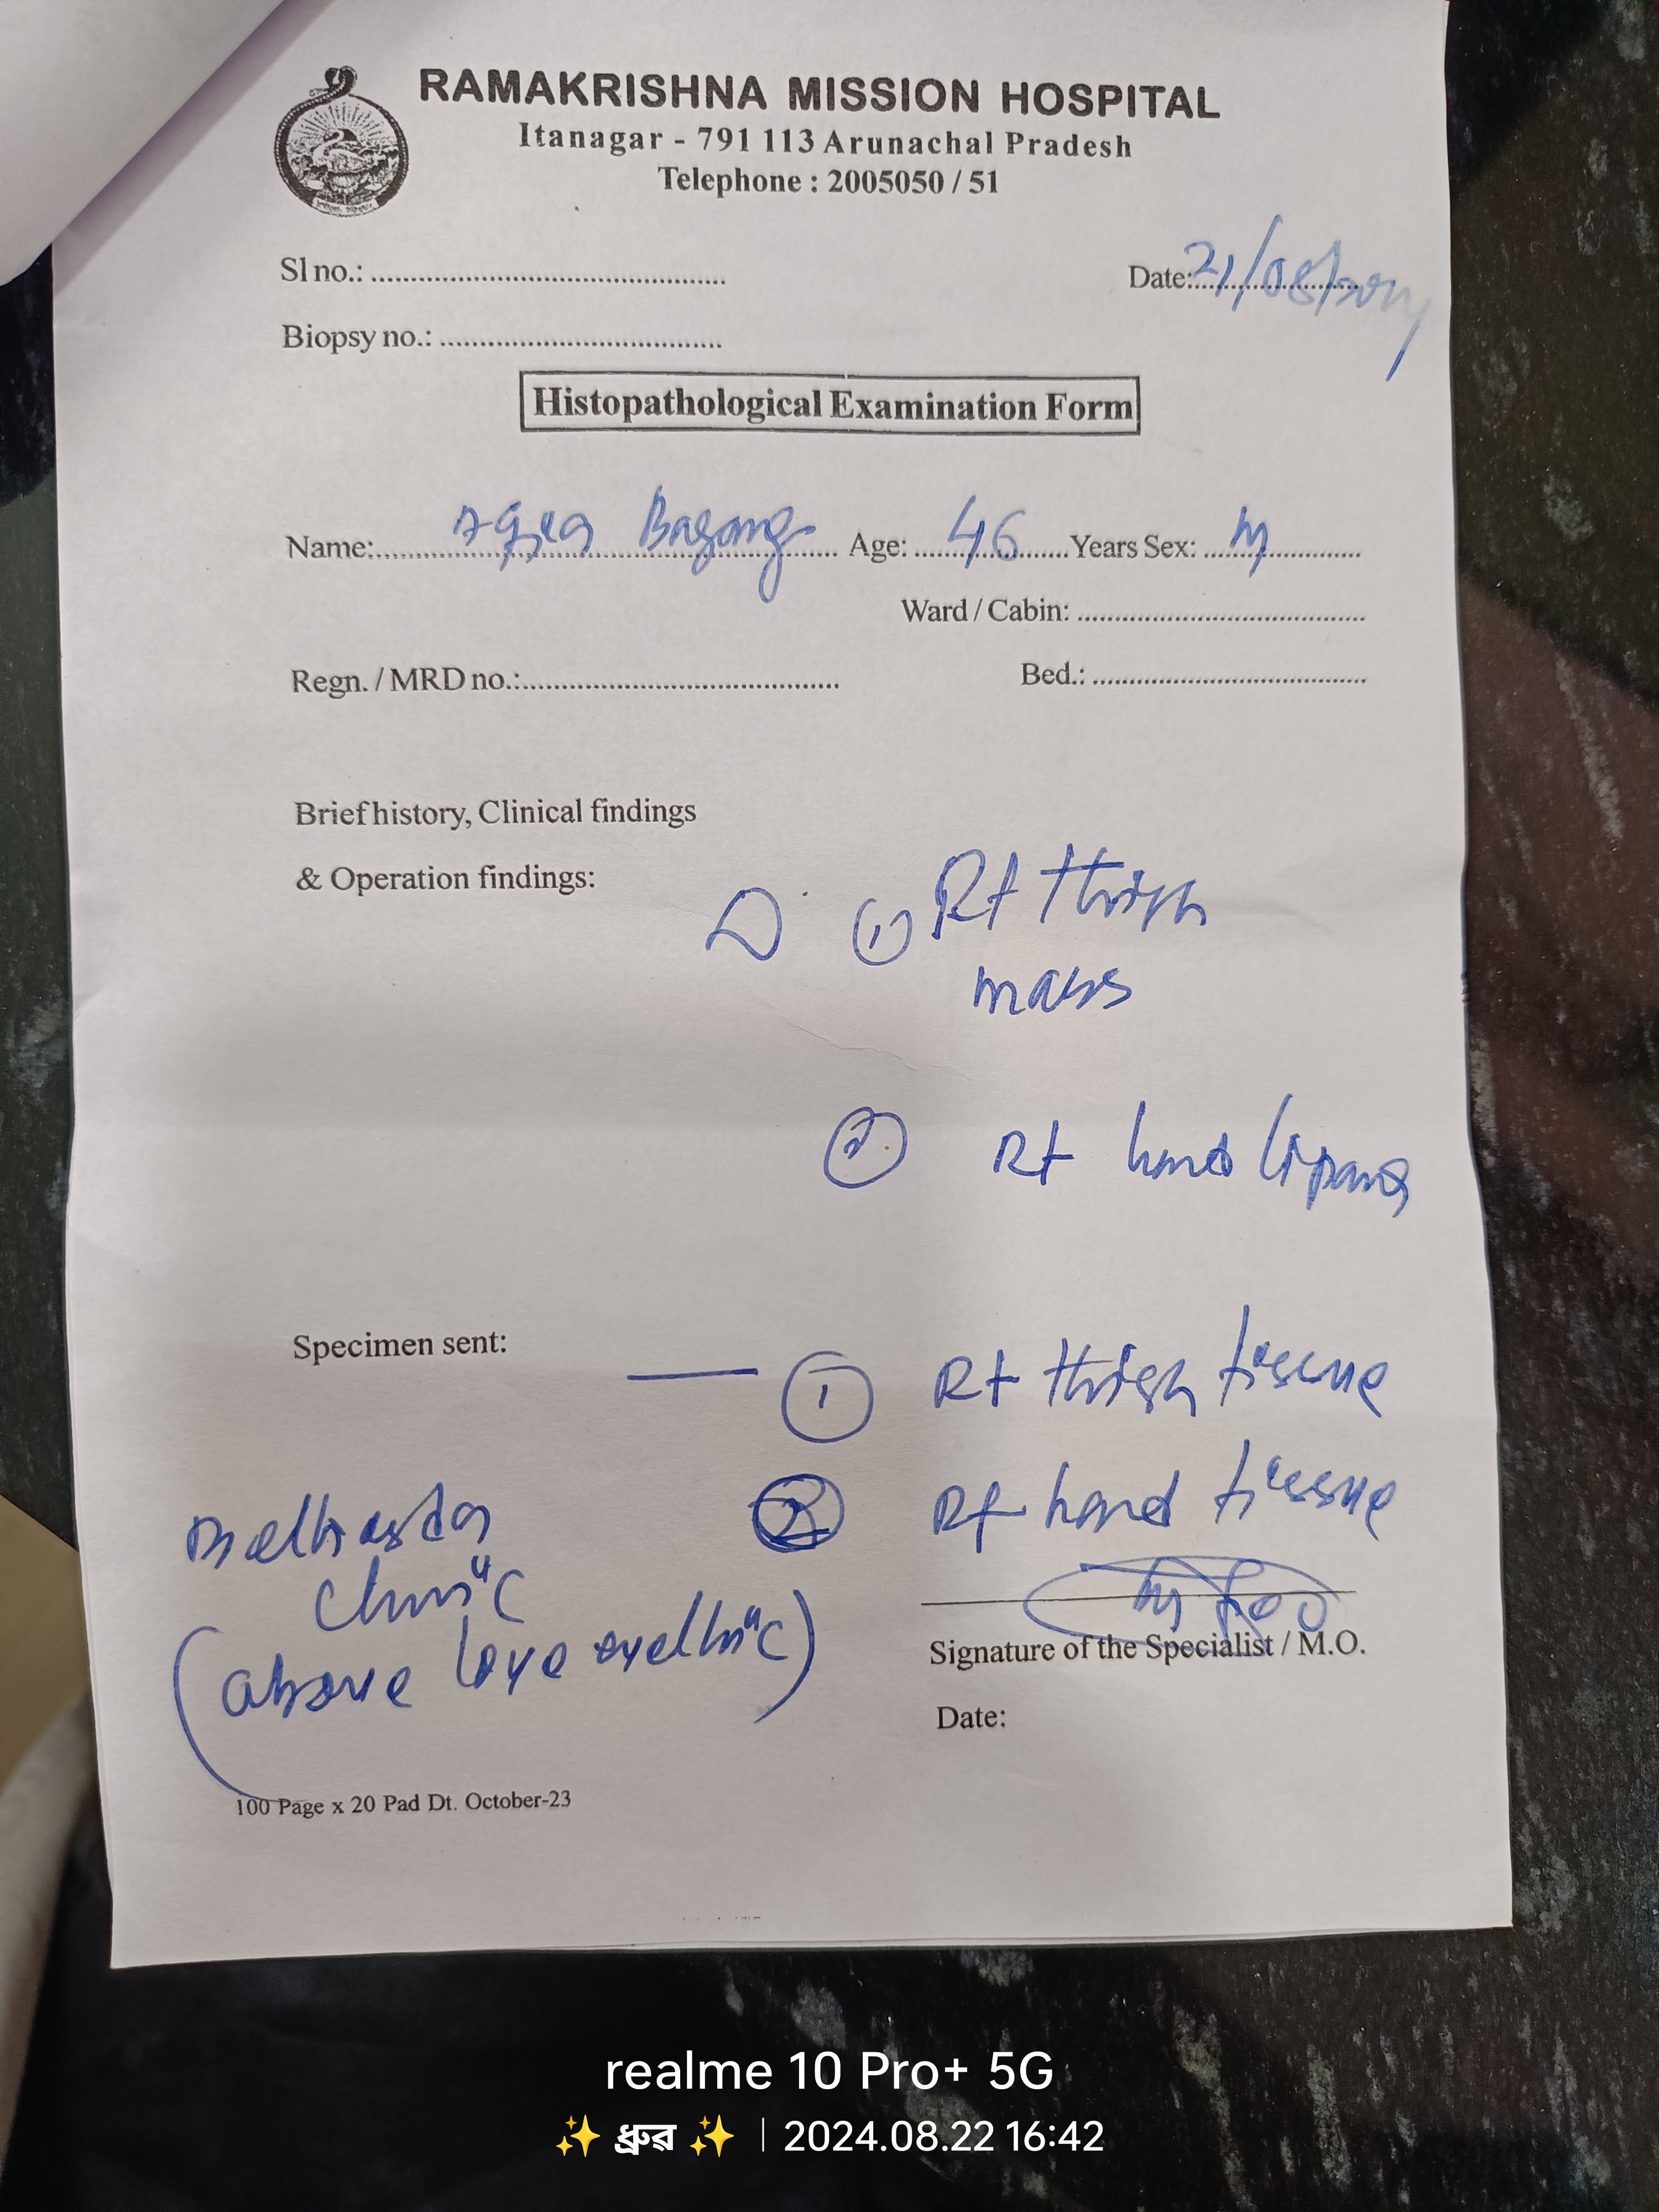 RAMAKRISHNA MISSION HOSPITAL
Itanagar - 791 113 Arunachal Pradesh
Telephone : 2005050 / 51
Sl no.: ............................................
Date: 21/08/2024
Biopsy no.: ....................................
Histopathological Examination Form
Name: ............ Age: 46 Years Sex: M
Ward / Cabin: .......................................
Regn. / MRD no.: ..........................................
Bed.: .....................................
Brief history, Clinical findings
& Operation findings:
① Rt thigh
mass
② Rt hand
Specimen sent: — ① Rt thigh tissue
② Rt hand tissue
clinic
(above
Signature of the Specialist / M.O.
Date:
100 Page x 20 Pad Dt. October-23
realme 10 Pro+ 5G
✨ ধ্রুৱ ✨ | 2024.08.22 16:42